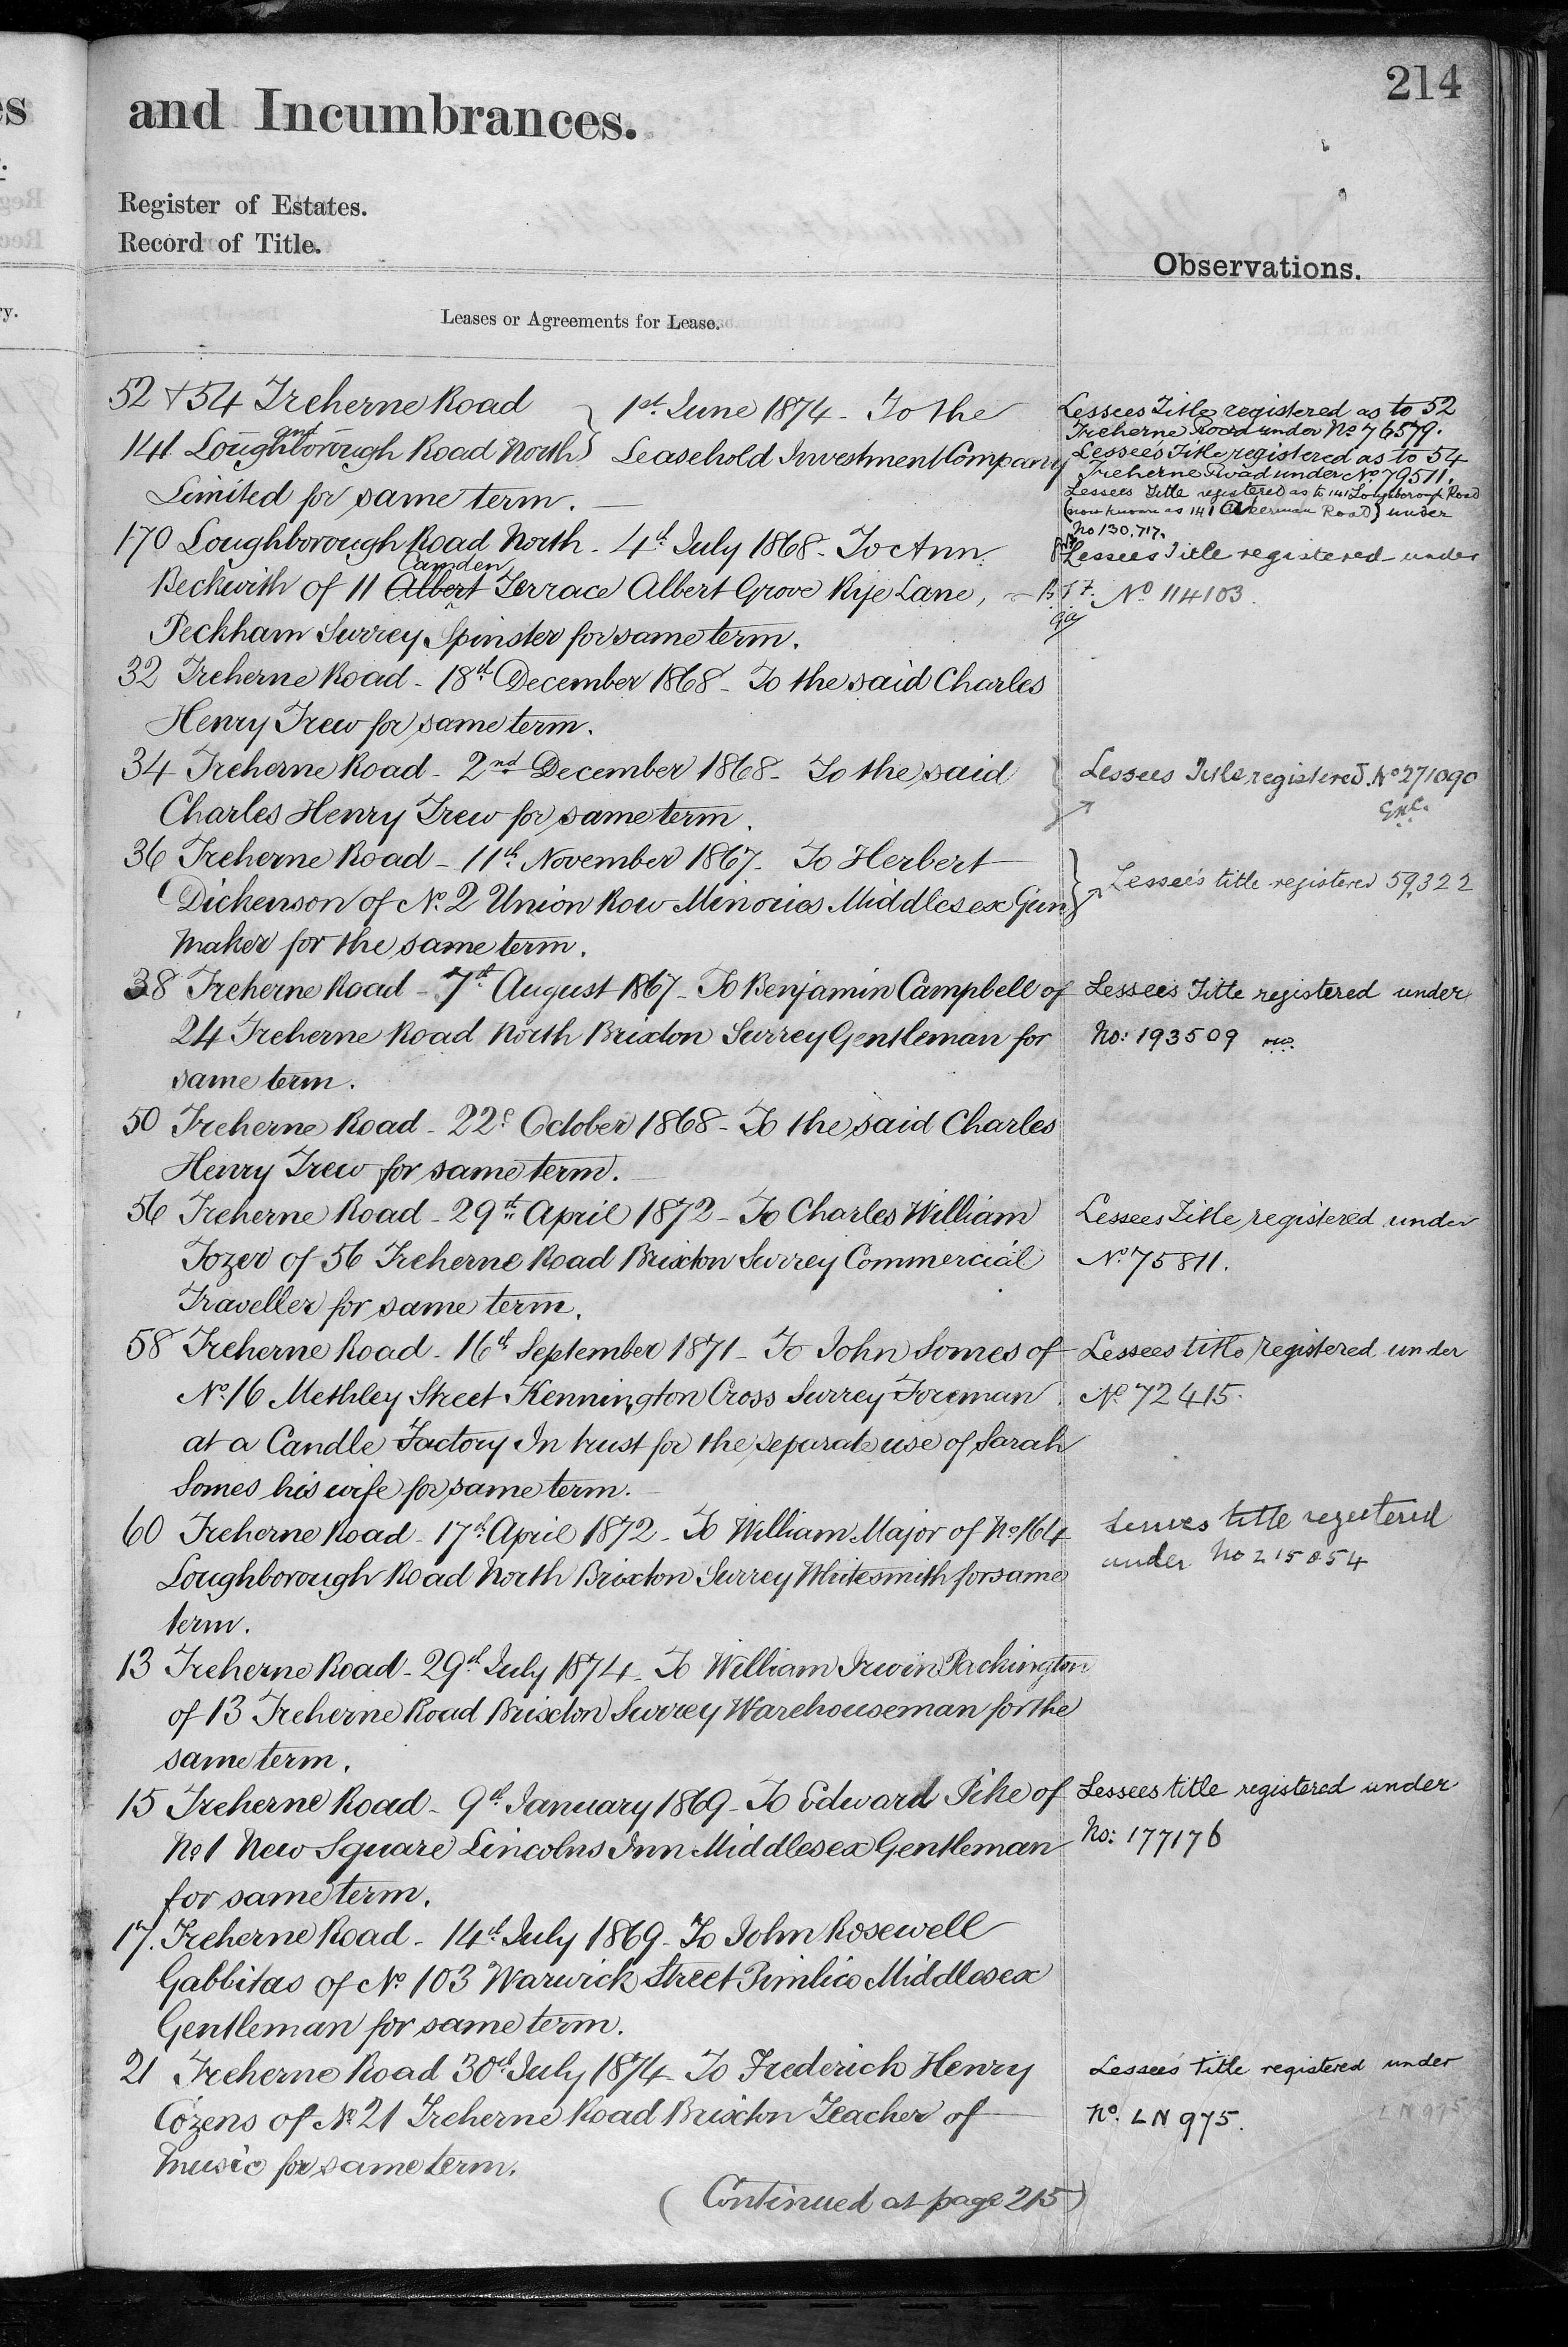 214
and Incumbrances.
Register of Estates.
Record of Title.
Observations.
Leases or Agreements for Lease.
52 & 54 Treherne Road
and
141 Loughborough Road North
1st June 1874 - To the
Leasehold Investment Company
Limited for same term.
Lessees Title registered as to 52
Treherne Road under No 76579.
Lessees Title registered as to 54
Treherne Road under No 79511.
Lessees Title registered as to 141 Loughborough Road
(now known as 141 Akerman Road) under
No 130.717.
170 Loughborough Road North - 4th July 1868 - To Ann
Camden
Beckwith of 11 Albert Terrace Albert Grove Rye Lane,
Peckham Surrey Spinster for same term.
Lessees Title registered under
No 114103.
32 Treherne Road - 18th December 1868 - To the said Charles
Henry Trew for same term.
34 Treherne Road - 2nd December 1868 - To the said
Charles Henry Trew for same term.
Lessees Title registered. No 271090
36 Treherne Road - 11th November 1867 - To Herbert
Dickenson of No. 2 Union Row Minories Middlesex Gun
Maker for the same term.
Lessee's title registered 59322
38 Treherne Road - 7th August 1867 - To Benjamin Campbell of
24 Treherne Road North Brixton Surrey Gentleman for
same term.
Lessees Title registered under
No: 193509
50 Treherne Road - 22d October 1868 - To the said Charles
Henry Trew for same term.
56 Treherne Road - 29th April 1872 - To Charles William
Tozer of 56 Treherne Road Brixton Surrey Commercial
Traveller for same term.
Lessees Title registered under
No 75811.
58 Treherne Road - 16th September 1871 - To John Somes of
No. 16 Methley Street Kennington Cross Surrey Foreman
at a Candle Factory In trust for the separate use of Sarah
Somes his wife for same term.
Lessees title registered under
No. 72415.
60 Treherne Road - 17th April 1872 - To William Major of No. 164
Loughborough Road North Brixton Surrey Whitesmith for same
term.
Lessees title registered
under No 215054
13 Treherne Road - 29th July 1874 - To William Irwin Packington
of 13 Treherne Road Brixton Surrey Warehouseman for the
same term.
15 Treherne Road - 9th January 1869 - To Edward Pike of
No 1 New Square Lincolns Inn Middlesex Gentleman
for same term.
Lessees title registered under
No: 177176
17. Treherne Road - 14th July 1869 - To John Rosewell
Gabbitas of No. 103 Warwick Street Pimlico Middlesex
Gentleman for same term.
21 Treherne Road 30th July 1874 - To Frederick Henry
Cozens of No 21 Treherne Road Brixton Teacher of
Music for same term.
Lessee's title registered under
No. LN 975.
LN 975
(Continued at page 215)